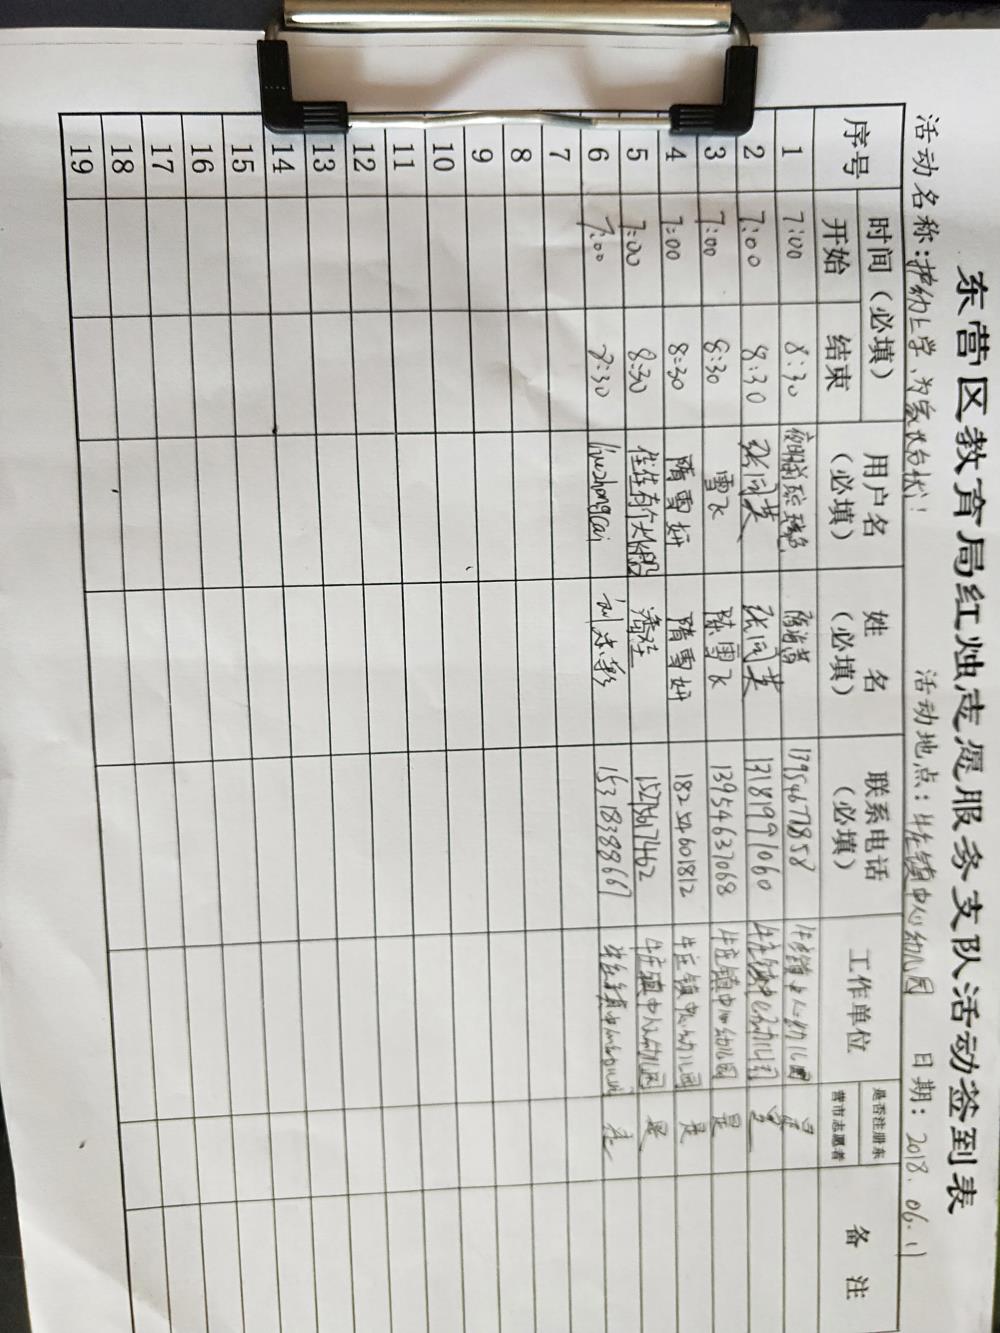 东营区教育局红烛志愿服务支队活动签到表
活动名称：护幼上学、为家长分忧！ 活动地点：牛庄镇中心幼儿园 日期：2018.06.11
序号 时间（必填） 用户名（必填） 姓名（必填） 联系电话（必填） 工作单位 是否注册东营市志愿者 备注
开始 结束
1 7:00 8:30 13954678858 牛庄镇中心幼儿园 是
2 7:00 8:30 张同英 张同英 13181991060 牛庄镇中心幼儿园 是
3 7:00 8:30 雪飞 陈雪飞 13954637068 牛庄镇中心幼儿园 是
4 7:00 8:30 隋雪妍 隋雪妍 18254601812 牛庄镇中心幼儿园 是
5 7:00 8:30 佳佳有个 潘佳 15275617462 牛庄镇中心幼儿园 是
6 7:00 8:30 liuzhongcai 15318388667 牛庄镇中心幼儿园 是
7
8
9
10
11
12
13
14
15
16
17
18
19